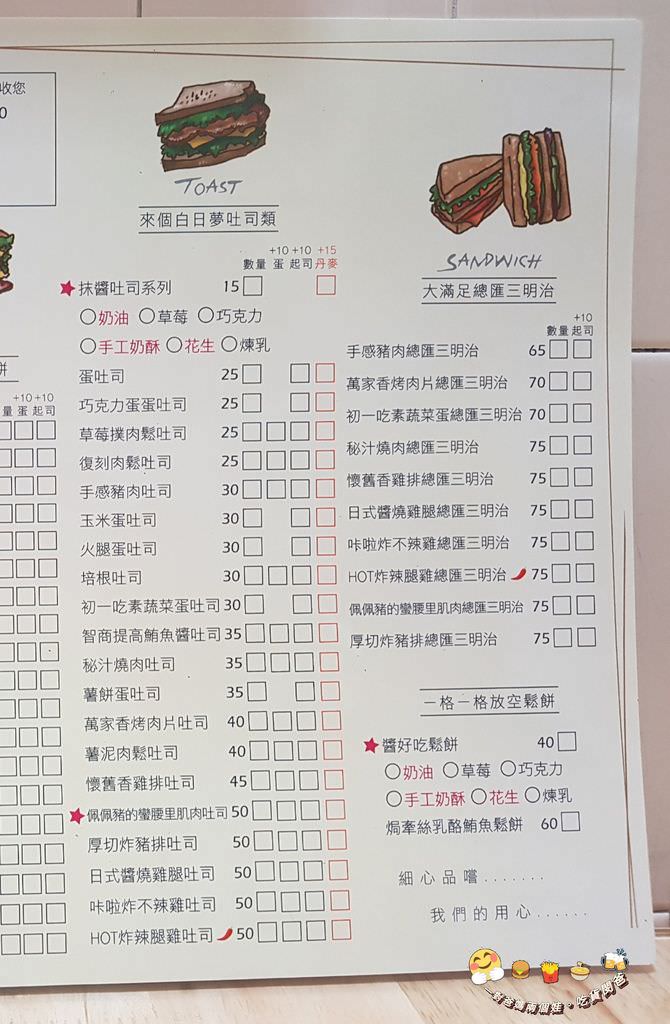 收您
0
TOAST
來個白日夢吐司類
+10 +10 +15
數量 蛋 起司 丹麥
抹醬吐司系列 15
奶油 草莓 巧克力
手工奶酥 花生 煉乳
蛋吐司 25
巧克力蛋蛋吐司 25
草莓撲肉鬆吐司 25
復刻肉鬆吐司 25
手感豬肉吐司 30
玉米蛋吐司 30
火腿蛋吐司 30
培根吐司 30
初一吃素蔬菜蛋吐司 30
智商提高鮪魚醬吐司 35
秘汁燒肉吐司 35
薯餅蛋吐司 35
萬家香烤肉片吐司 40
薯泥肉鬆吐司 40
懷舊香雞排吐司 45
佩佩豬的蠻腰里肌肉吐司 50
厚切炸豬排吐司 50
日式醬燒雞腿吐司 50
咔啦炸不辣雞吐司 50
HOT炸辣腿雞吐司 50
餅
+10 +10
量 蛋 起司
SANDWICH
大滿足總匯三明治
+10
數量 起司
手感豬肉總匯三明治 65
萬家香烤肉片總匯三明治 70
初一吃素蔬菜蛋總匯三明治 70
秘汁燒肉總匯三明治 75
懷舊香雞排總匯三明治 75
日式醬燒雞腿總匯三明治 75
咔啦炸不辣雞總匯三明治 75
HOT炸辣腿雞總匯三明治 75
佩佩豬的蠻腰里肌肉總匯三明治 75
厚切炸豬排總匯三明治 75
一格一格放空鬆餅
醬好吃鬆餅 40
奶油 草莓 巧克力
手工奶酥 花生 煉乳
焗牽絲乳酪鮪魚鬆餅 60
細心品嚐.......
我們的用心......